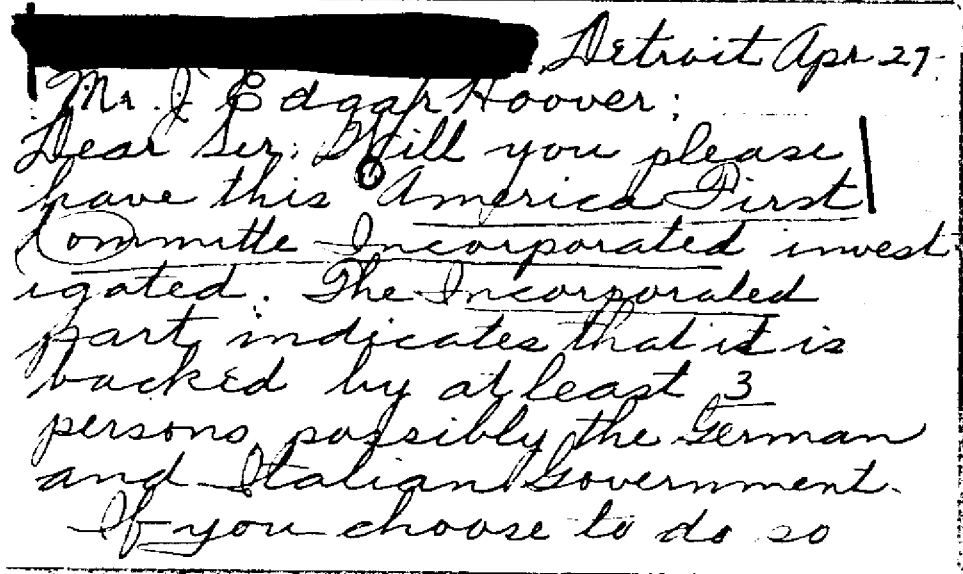 Detroit Apr 27.
Mr. J Edgar Hoover;
Dear Sir; Will you please
have this America First
Committe Incorporated invest
igated. The Incorporated
part, indicates that it is
backed by at least 3
persons, possibly the German
and Italian Government.
If you choose to do so